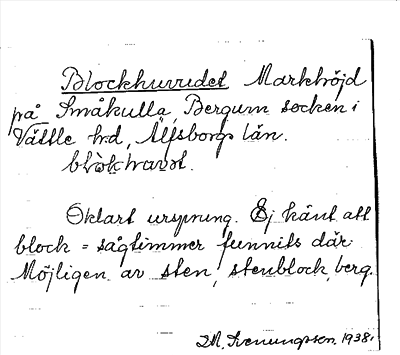 Blockhuvudet Markhöjd
på Småkulla, Bergum socken i
Vättle hd, Älfsborgs län.
Oklart ursprung. Ej känt att
block = sågtimmer funnits där
Möjligen av sten, stenblock, berg.
1938.